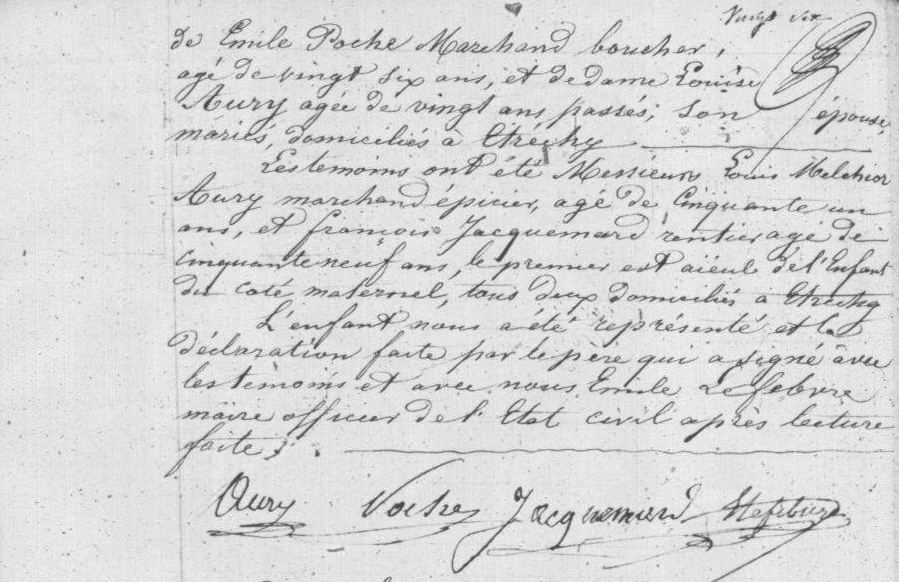 Vingt six
de Emile Poche Marchand boucher,
agé de vingt six ans, et de dame Louise
Aury agée de vingt ans passés, son épouse,
mariés, domiciliés à Etréchy
Les temoins ont été Messieurs Louis Melchior
Aury marchand épicier, agé de Cinquante un
ans, et françois Jacquemard rentier agé de
Cinquante neuf ans, le premier est aïeul de l'Enfant
du coté maternel, tous deux domiciliés à Etrechy
L'enfant nous a été représenté et la
déclaration faite par le père qui a signé avec
les témoins et avec nous Emile Lefebvre
maire officier de l'Etat civil après lecture
faite,
Aury Poche Jacquemard Lefebvre